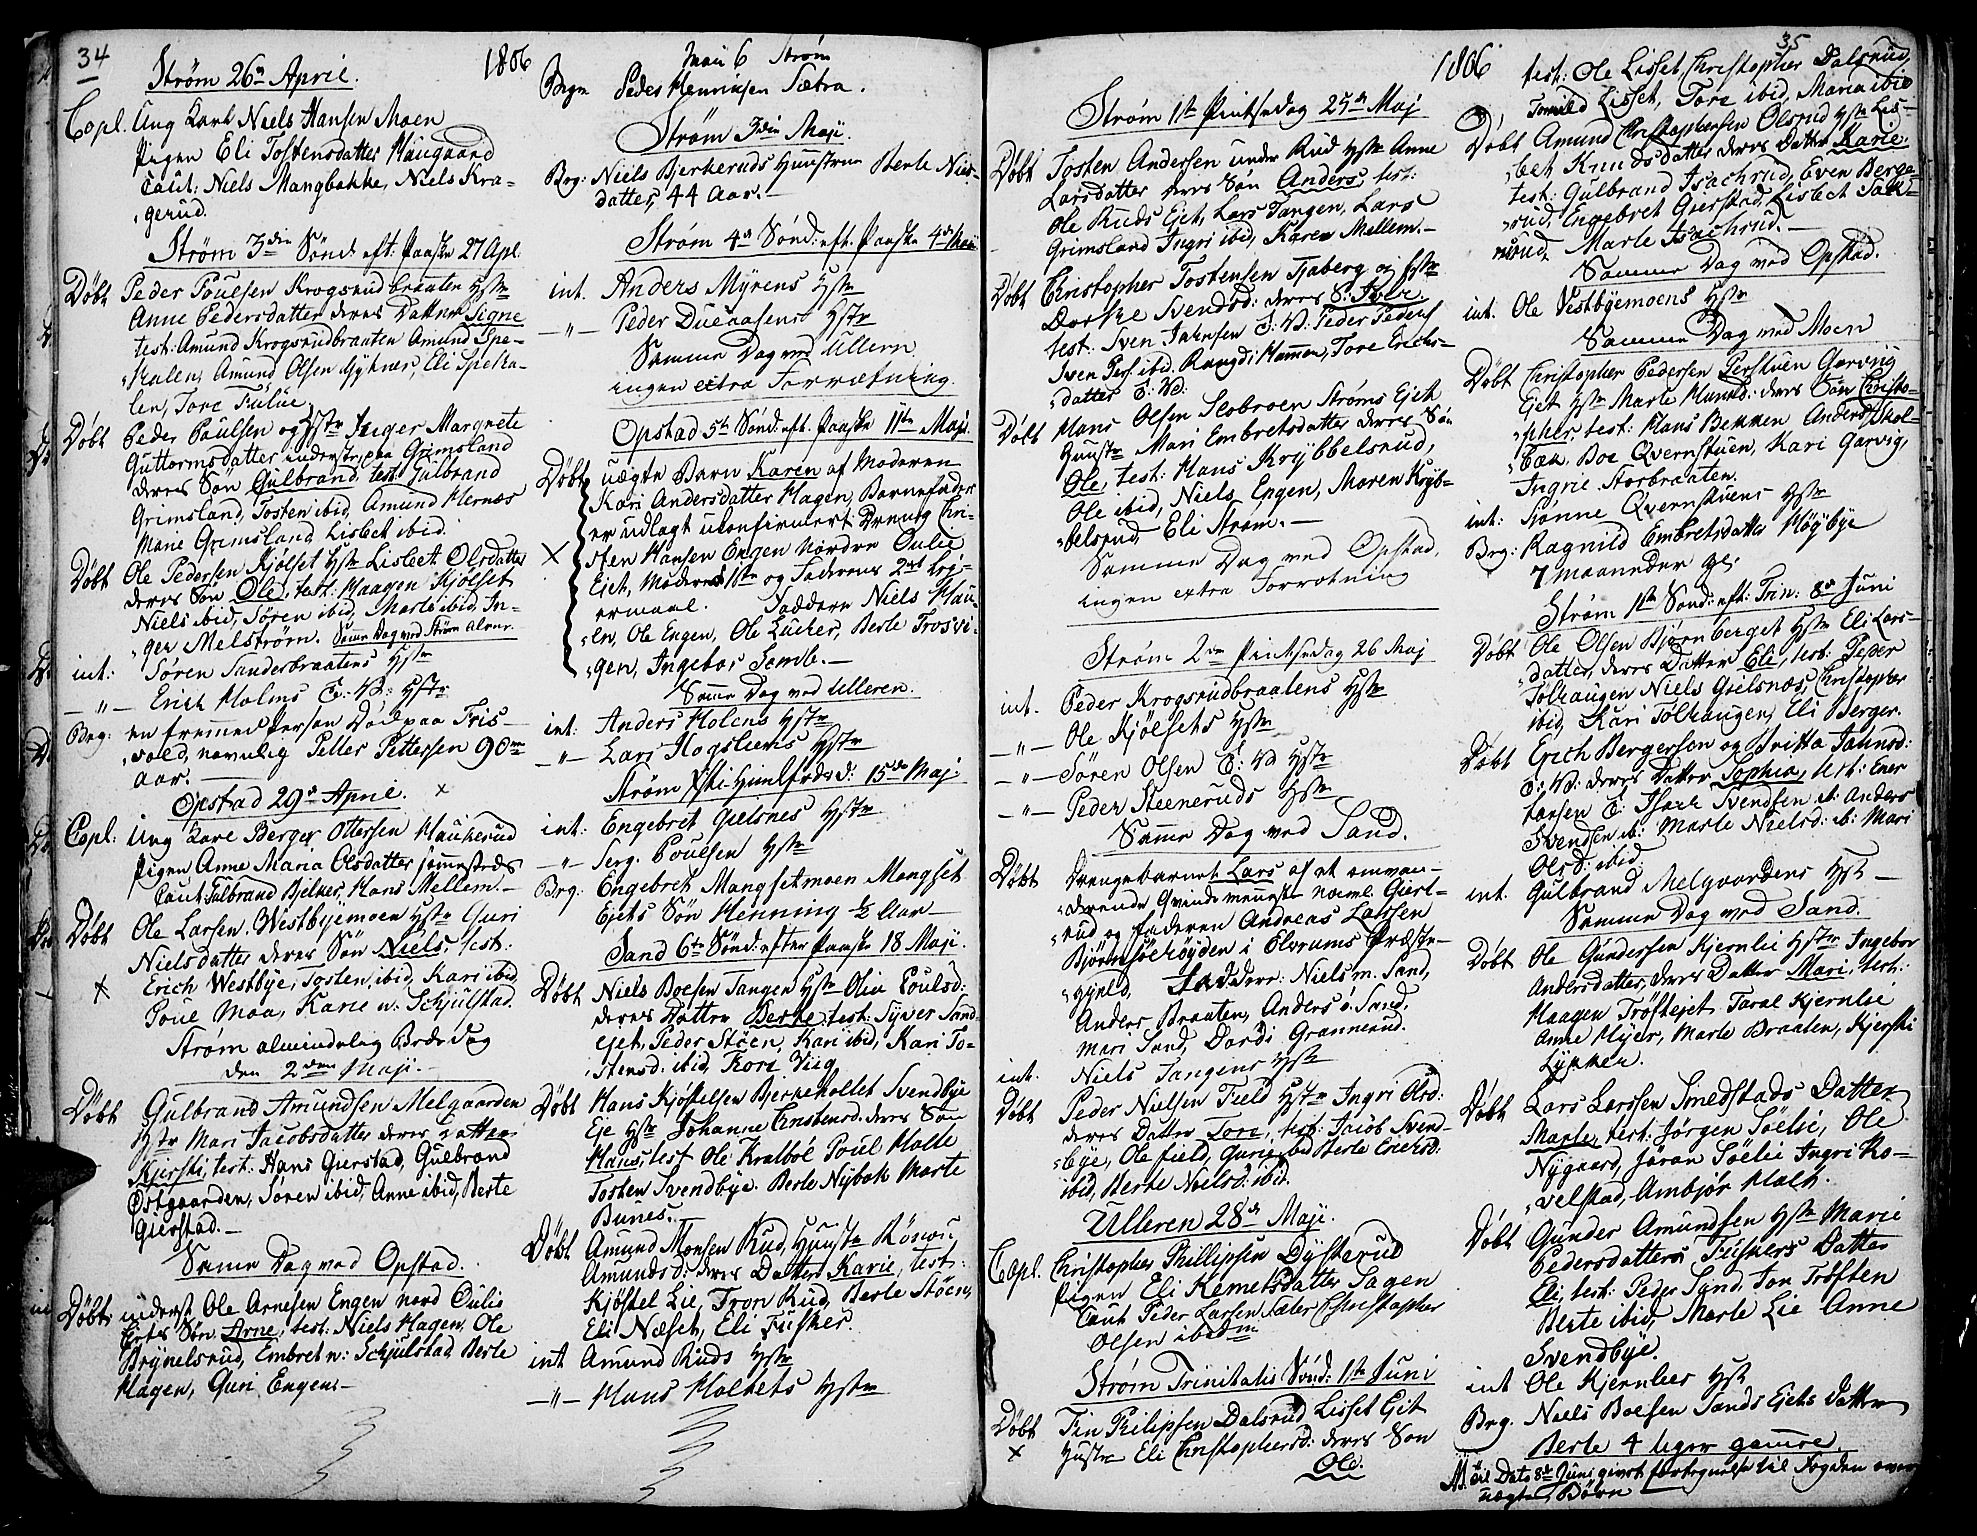 34
1806
Strøm 26de April.
Copl. Ung Karl Niels Hansen Moen
Pigen Eli Tostensdatter Haugaard
Caut: Niels Mangbakke, Niels Kra-
gerud.
Strøm 3die Sønd. eft. Paaske 27 Apl.
Døbt Peder Poulsen Krogsrudbraaten Hstr
Anne Pedersdatter deres Datter Signe
test: Amund Krogsrudbraaten Amund Spe-
kalen, Amund Olsen, Eli Speka-
len, Tore Fulue
Døbt Peder Paulsen og Hstr Inger Margrete
Guttormsdatter inderst. paa Grimsland
deres Søn Gulbrand, test: Gulbrand
Grimsland, Tosten ibid, Amund Hernæs
Marie Grimsland Lisbet ibid.
Døbt Ole Pedersen Kjølset Hstr Lisbet Olsdatter
deres Søn Ole, test: Haagen Kjølset
Niels ibid, Søren ibid, Marte ibid, In-
ger Melstrøm. Same Dag ved Strøm
int: Søren Sanderbraatens Hstr
-"- Erich Holms E: V: Hstr
Beg: en fremmed Person Død paa Tris-
vold, navnlig Petter Pettersen 90
aar.
Opstad 29de April. x
Copl: Ung Karl Berger Ottersen Haukerud
Pigen Anne Maria Olsdatter sammestæds
Caut: Gulbrand Bekker, Hans Mellem.
Døbt Ole Larsen Westbyemoen Hstr Guri
Nielsdatter deres Søn Niels, test:
x Erich Westbye, Tosten ibid, Kari ibid
Poul Moe, Karie n: Schjulstad.
Strøm almindelig Bededag
den 2den Maji.
Døbt Gulbrand Amundsen Melgaarden
Hstr Mari Jacobsdatter deres Datter
Kjersti, test: Hans Gierstad, Gulbrand
Østgaarden, Søren ibid, Anne ibid, Berte
Gierstad.
Same Dag ved Opstad.
Døbt inderst Ole Arnesen Engen nord Oulie
Ejets Søn Arne, test: Niels Hagen, Ole
Brynelsrud, Embret n: Schjulstad Berte
Hagen, Guri Engen.
Maii 6 Strøm
Begr Peder Henriksen Sætra.
Strøm 3die Maji.
Beg: Niels Bjerkeruds Huustrue Berte Niels-
datter, 44 Aar.
Strøm 4de Sønd: eft. Paaske 4de Maji
int. Anders Myrens Hstr
-"- Peder Dueaasens Hstr
Samme Dag ved Ullern
ingen extra Forretning.
Opstad 5te Sønd. eft. Paaske 11te Maji.
Døbt uægte Barn Karen af Moderen
Kari Andersdatter Hagen, Barnefader
er udlagt ukonfirmert Dreng Chri-
x sten Hansen Engen Nordre Oulie
Ejet, Moderens 1ste og Faderens 2det Lej-
ermaal. Faddere Niels Hau-
en, Ole Engen, Ole Lücher, Berte Trosvi-
gen, Ingebor Somb.
Same Dag ved Ulleren.
int: Anders Holens Hstr
-"- Lars Kogsliens Hstr
Strøm Xsti Himlfardsd: 15de Maji
int: Engebrit Gielsnes Hstr
-"- Serg. Poulsen Hstr
Beg: Engebret Mangsetmoen Mangset
Ejets Søn Henning ½ Aar
Sand 6te Sønd: efter Paaske 18 Maji.
Døbt Niels Boesen Tangen Hstr Olia Poulsd:
deres Datter Berte, test: Syver Sand-
ejet, Peder Støen, Kari ibid, Kari To-
stensd. ibid, Tore Viig
Døbt Hans Kjøstelsen Bjerkeholtet Svendbye
Eje Hstr Johanne Christensd. deres Søn
Hans, test Ole Kralbøl Poul Holte
Tosten Svendbye. Berte Nybak Marte
Bunes.
Døbt Amund Monsen Rud, Huustr Rønnou
Amundsd: deres Datter Karie, test:
Kjøstel Lie, Tron Rud, Berte Støen,
Eli Næset, Eli Fusker.
int Amund Ruds Hstr
-"- Hans Holtets Hstr
35
1806
Strøm 1ste Pintsedag 25de Maj
Døbt Tosten Andersen under Rud Hstr Anne
Larsdatter deres Søn Anders, test:
Ole Ruds Ejet, Lars Tangen, Lars
Grimsland Ingri ibid, Karen Mellem.
Døbt Christopher Tostensen Tjaberg og Hstr
Dorthe Svendsd: deres S: Iver
test: Sven Jahnsen E: V: Peder Peders
Iven Pers. ibid. Rangdi Hammen, Tore Erichs-
datter E: V:
Døbt Hans Olsen Slobroen Strøms Ejet
Huustr Mari Embretsdatter deres Søn
Ole, test: Hans Krybbelsrud,
Ole ibid, Niels Engen, Maren Kryb-
belsrud, Eli Strøm.
Samme Dag ved Opstad,
ingen extra Forretning
Strøm 2den Pintsedag 26 Maj
int. Peder Krogsrudbraatens Hstr
-"- Ole Kjølsets Hstr
-"- Søren Olsen E: V Hstr
-"- Peder Keeneruds Hstr
Samme Dag ved Sand.
Døbt Drengebarnet Lars af et omvan-
drende Qvindemenneske navnl. Giert-
rud og faderen Andreas Larsen
Bjørnsøehøyden i Elverums Præste-
gjeld, Faddere: Niels m. Sand,
Anders Braaten, Anders ø: Sand.
Mari Sand, Dordi Grannerud.
int. Niels Tangens Hstr
Døbt Peder Nielsen Field Hstr Ingri Olsd:
deres Datter Tore, test: Jacob Svend-
bye, Ole field, Guri ibid Berte Erichsd:
ibid, Berte Nielsd: ibid.
Ulleren 28de Maji.
Copl. Christopher Phillipsen Dysterud
Pigen Eli Kemetsdatter Sagen
Caut Peder Larsen Sæter Christopher
Olsen ibidm
Strøm Trinitatis Sønd: 1ste Juni
Døbt Fin Philipsen Dalsrud Lisset Ejet
x Hustr Eli Christophersd: deres Søn
Ole.
test: Ole Lisset, Christopher Dalsrud,
Tomild Lisset, Tore ibid, Maria ibid
Døbt Amund Christophersen Olsrud Hstr Lis-
bet Knudsdatter deres Datter Karie,
test: Gulbrand Isachrud, Even Berge-
rud, Engebret Gierstad, Lisbet Sæk-
rud, Marte Isachrud.
Samme Dag ved Opstad.
int. Ole Vestbyemoens Hstr
Samme Dag ved Moen
Døbt Christopher Pedersen Perstuen Garvig
Ejet Hstr Marte Hansd: deres Søn Christo-
pher, test: Hans Bekken Anders Skol-
bæk. Boe Qvernstuen, Kari Garvig,
Ingrie Storbraaten.
int: Siønne Qvernstuens Hstr
Beg: Ragnild Embretsdatter Høybye
7 maaneder gl.
Strøm 1ste Sønd: eft: Trin: 8de Juni
Døbt Ole Olsen Bjørnberget Hstr Eli Lars-
datter, deres Datter Eli, test: Peder
Tolhaugen Niels Gielsnæs, Christopher
ibid, Kari Tølhaugen, Eli Berger.
Døbt Erich Bergersen og Britta Jahnsd:
E: V: deres Datter Sophia, test: Ener
Larsen E: Isach Svendsen ib: Anders
Svendsen ib: Marte Nielsd: ib: Mari
Olsd: ibid:
int. Gulbrand Melgaardens Hstr
Samme Dag ved Sand.
Døbt Ole Gundersen Kjernlie Hstr Ingebor
Andersdatter, deres Datter Mari, test:
Haagen Trøftejet Taral Kjernlie
Anne Myer, Marte Braaten, Kjersti
Lykken.
Døbt Lars Larsen Smedstads Datter
Marte, test: Jørgen Søelie, Ole
Nygaard, Jøran Søelie Ingri Ko-
velstad, Ambjør Holt.
Døbt Gunder Amundsen Hstr Marie
Pedersdatters Fuskers Datter
Eli, test: Peder Sand, Jon Trøften
Berte ibid, Marte Lie Anne
Svendbye.
int Ole Kjernlies Hstr
Beg. Niels Boesen Sands Ejets Datter
Berte 4 uger gamle.
NB. til Dato 8de Juni givet fortegnelse til Fogden over
uægte Børn